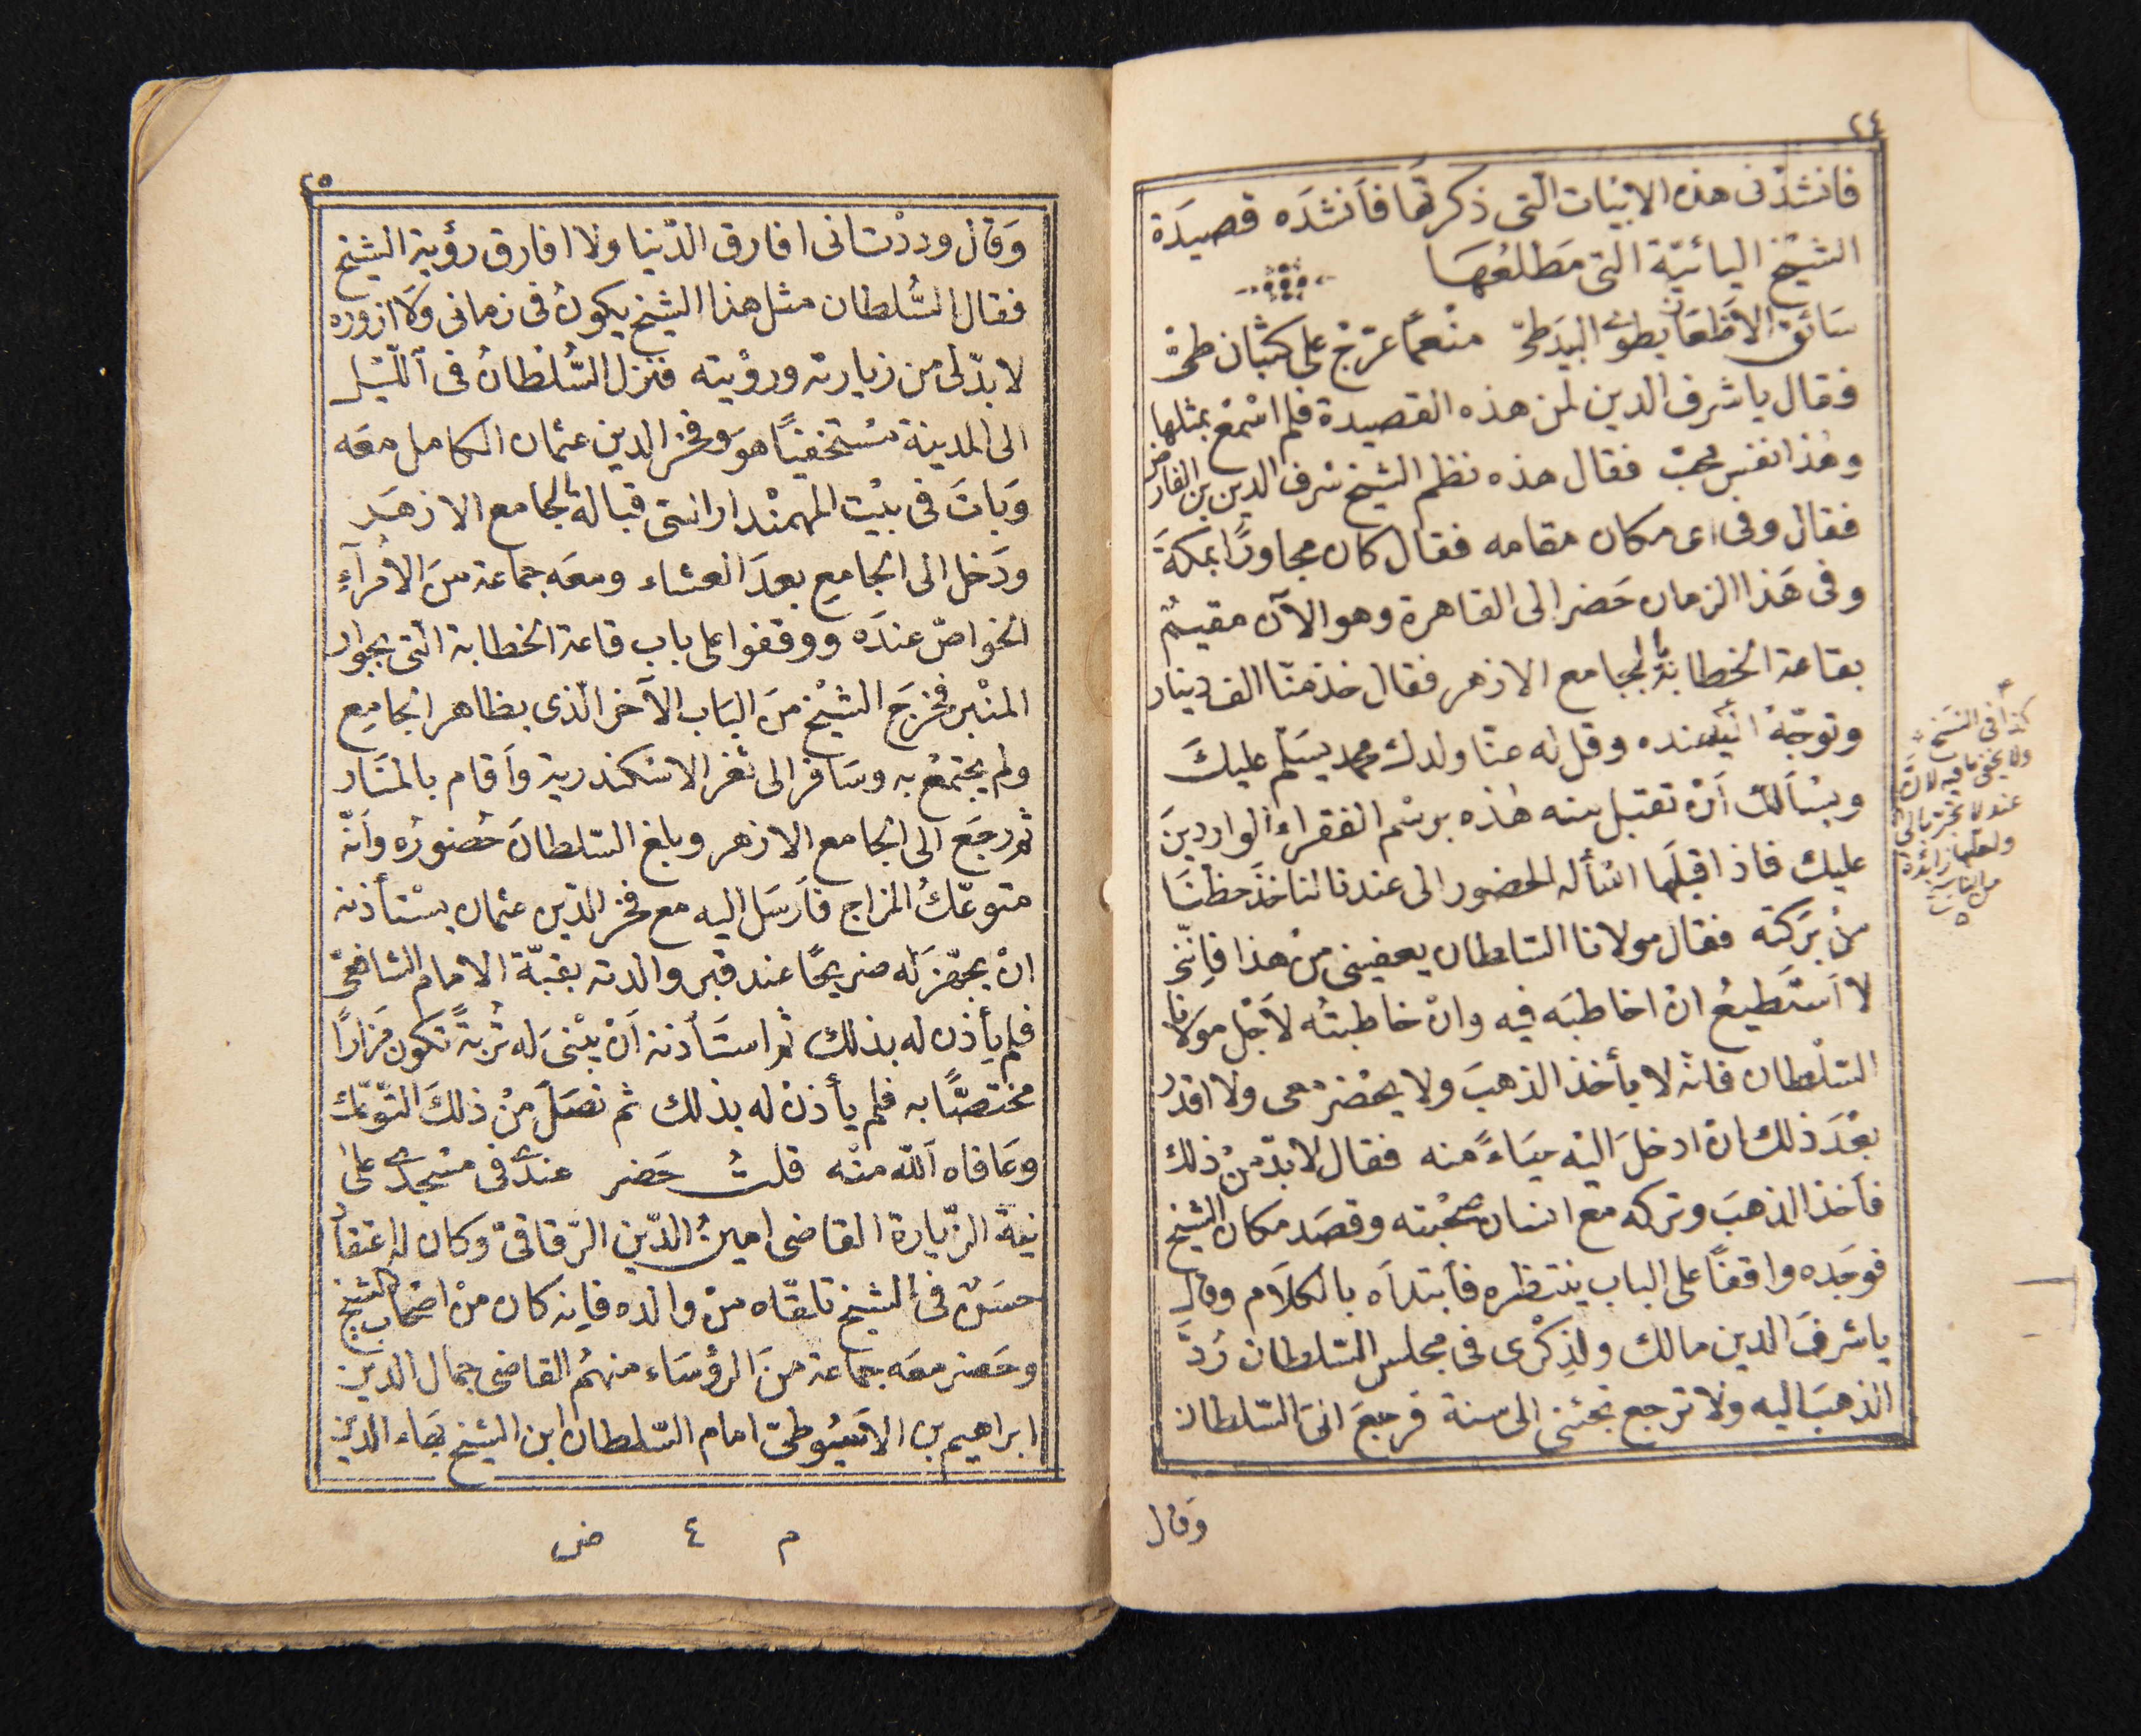 ٢٤
فانشدنى هذه الابيات الّتى ذكرتها فأنشدَه قصيدَة
الشيخ اليائيّة التى مَطلعُهَا
سَائق الاظعَان يطوى البيدَ طىّ منعمًا عرّج على كثبان طىّ
فقال يا شرف الدين لمن هذه القصيدة فلم اسْمعْ بمثلها
وهٰذا نفس محبّ فقال هذه نظم الشيخ شرف الدين بن الفارض
فقال وفى اى مكان مقامه فقال كان مجاورًا بمكةَ
وفى هَذا الزمان حَضر الى القاهرة وهو الآن مقيمٌ
بقاعة الخطابة بالجامع الازهر فقال خذ منّا الف دينار
وتوجّهْ الى عنده وقل له عنّا ولدك محمد يسَلّم عليكَ
ويسْألك أنْ تقبل منه هٰذه برسْم الفقراء الواردينَ
عليك فاذا قبلَها اسْأله الحضور الى عندنا لناخذَ حظنَا
منْ بَركته فقال مولانا السلطان يعفينى منْ هذا فإنّى
لا اَستَطيعُ ان اخاطبَه فيه وانْ خاطبتُه لاَجْل مولانا
السّلطان فانّه لا يأخذ الذهبَ ولا يحْضرْ معى ولا اقدر
بعْدَ ذلك ان ادخلَ اليْه حيَاءً منه فقال لا بدّ منْ ذلك
فأخذ الذهبَ وتركه مع انسان صحْبته وقصَد مكان الشيخ
فوجَده واقفًا على الباب ينتظره فأبتدأه بالكلَام وقال
يا شرفَ الدين مالك ولذِكْرى فى مجلس السّلطان رُدَّ
الذهبَ اليه ولا ترجع تجئنى الى سنة فرجعَ الىَ السّلطان
وَقال
كذا فى النسَخ
ولا يخفى ما فيه لانّ
عند لا تجرّ بالى
ولعلّها زائدة
من الناسخ
٢٥
وَقال وددْت انى افارق الدّنيا ولا افارق رؤية الشيخ
فقال السُّلطان مثل هذا الشيخ يكونُ فى زمانى وَلا ازوره
لا بدّ لى من زيارته ورؤيته فنزل السُّلطانُ فى اللّيْل
الى المدينة مسْتخفيًا هوَ وفخر الدين عثمان الكامل معَه
وَباتَ فى بيْت المهمنْدار الّتى قبالة الجامع الازهَر
ودَخل الى الجامع بعدَ العشاء ومعَه جماعة منَ الامرآءِ
الخواصّ عندَه ووقفوا على باب قاعة الخطابة الّتى بجوار
المنْبر فخرَجَ الشيْخ منَ البَاب الآخر الّذى بظاهر الجامع
ولم يجتمعْ به وسَافر الى ثغر الاسكندرية وأقام بالمنَار
ثم رجَع الى الجامع الازهر وبلغ السّلطانَ حُضورُه وأنّه
متوعّكُ المزاج فأرسَل اليه مع فخر الدّين عثمان يسْتأذنه
انْ يجهّزَ له ضريحًا عند قبر والدته بقبّة الامام الشافعىّ
فلم يأذن له بذلك ثم استَأذنه أنْ يبْنىَ له تُربةً تكون مَزارًا
مختصًّا به فلم يأذنْ له بذلك ثم نصَلَ منْ ذلكَ التّوعّك
وعَافاه اَللّه منْه قلتُ حَضر عندى فى مسْجدى على
نيّة الزّيارة القاضى امينُ الدّين الرّقاقىّ وكان له اعتقاد
حسَنٌ فى الشيخ تلقّاه منْ والده فإنه كان منْ اصْحاب الشيخ
وحَضر معَه جماعة منَ الرؤسَاء منهُم القاضى جمال الدين
ابراهيم بن الاسيُوطىّ امام السّلطان ابن الشيْخ بهَاء الدين
م ٤ ض